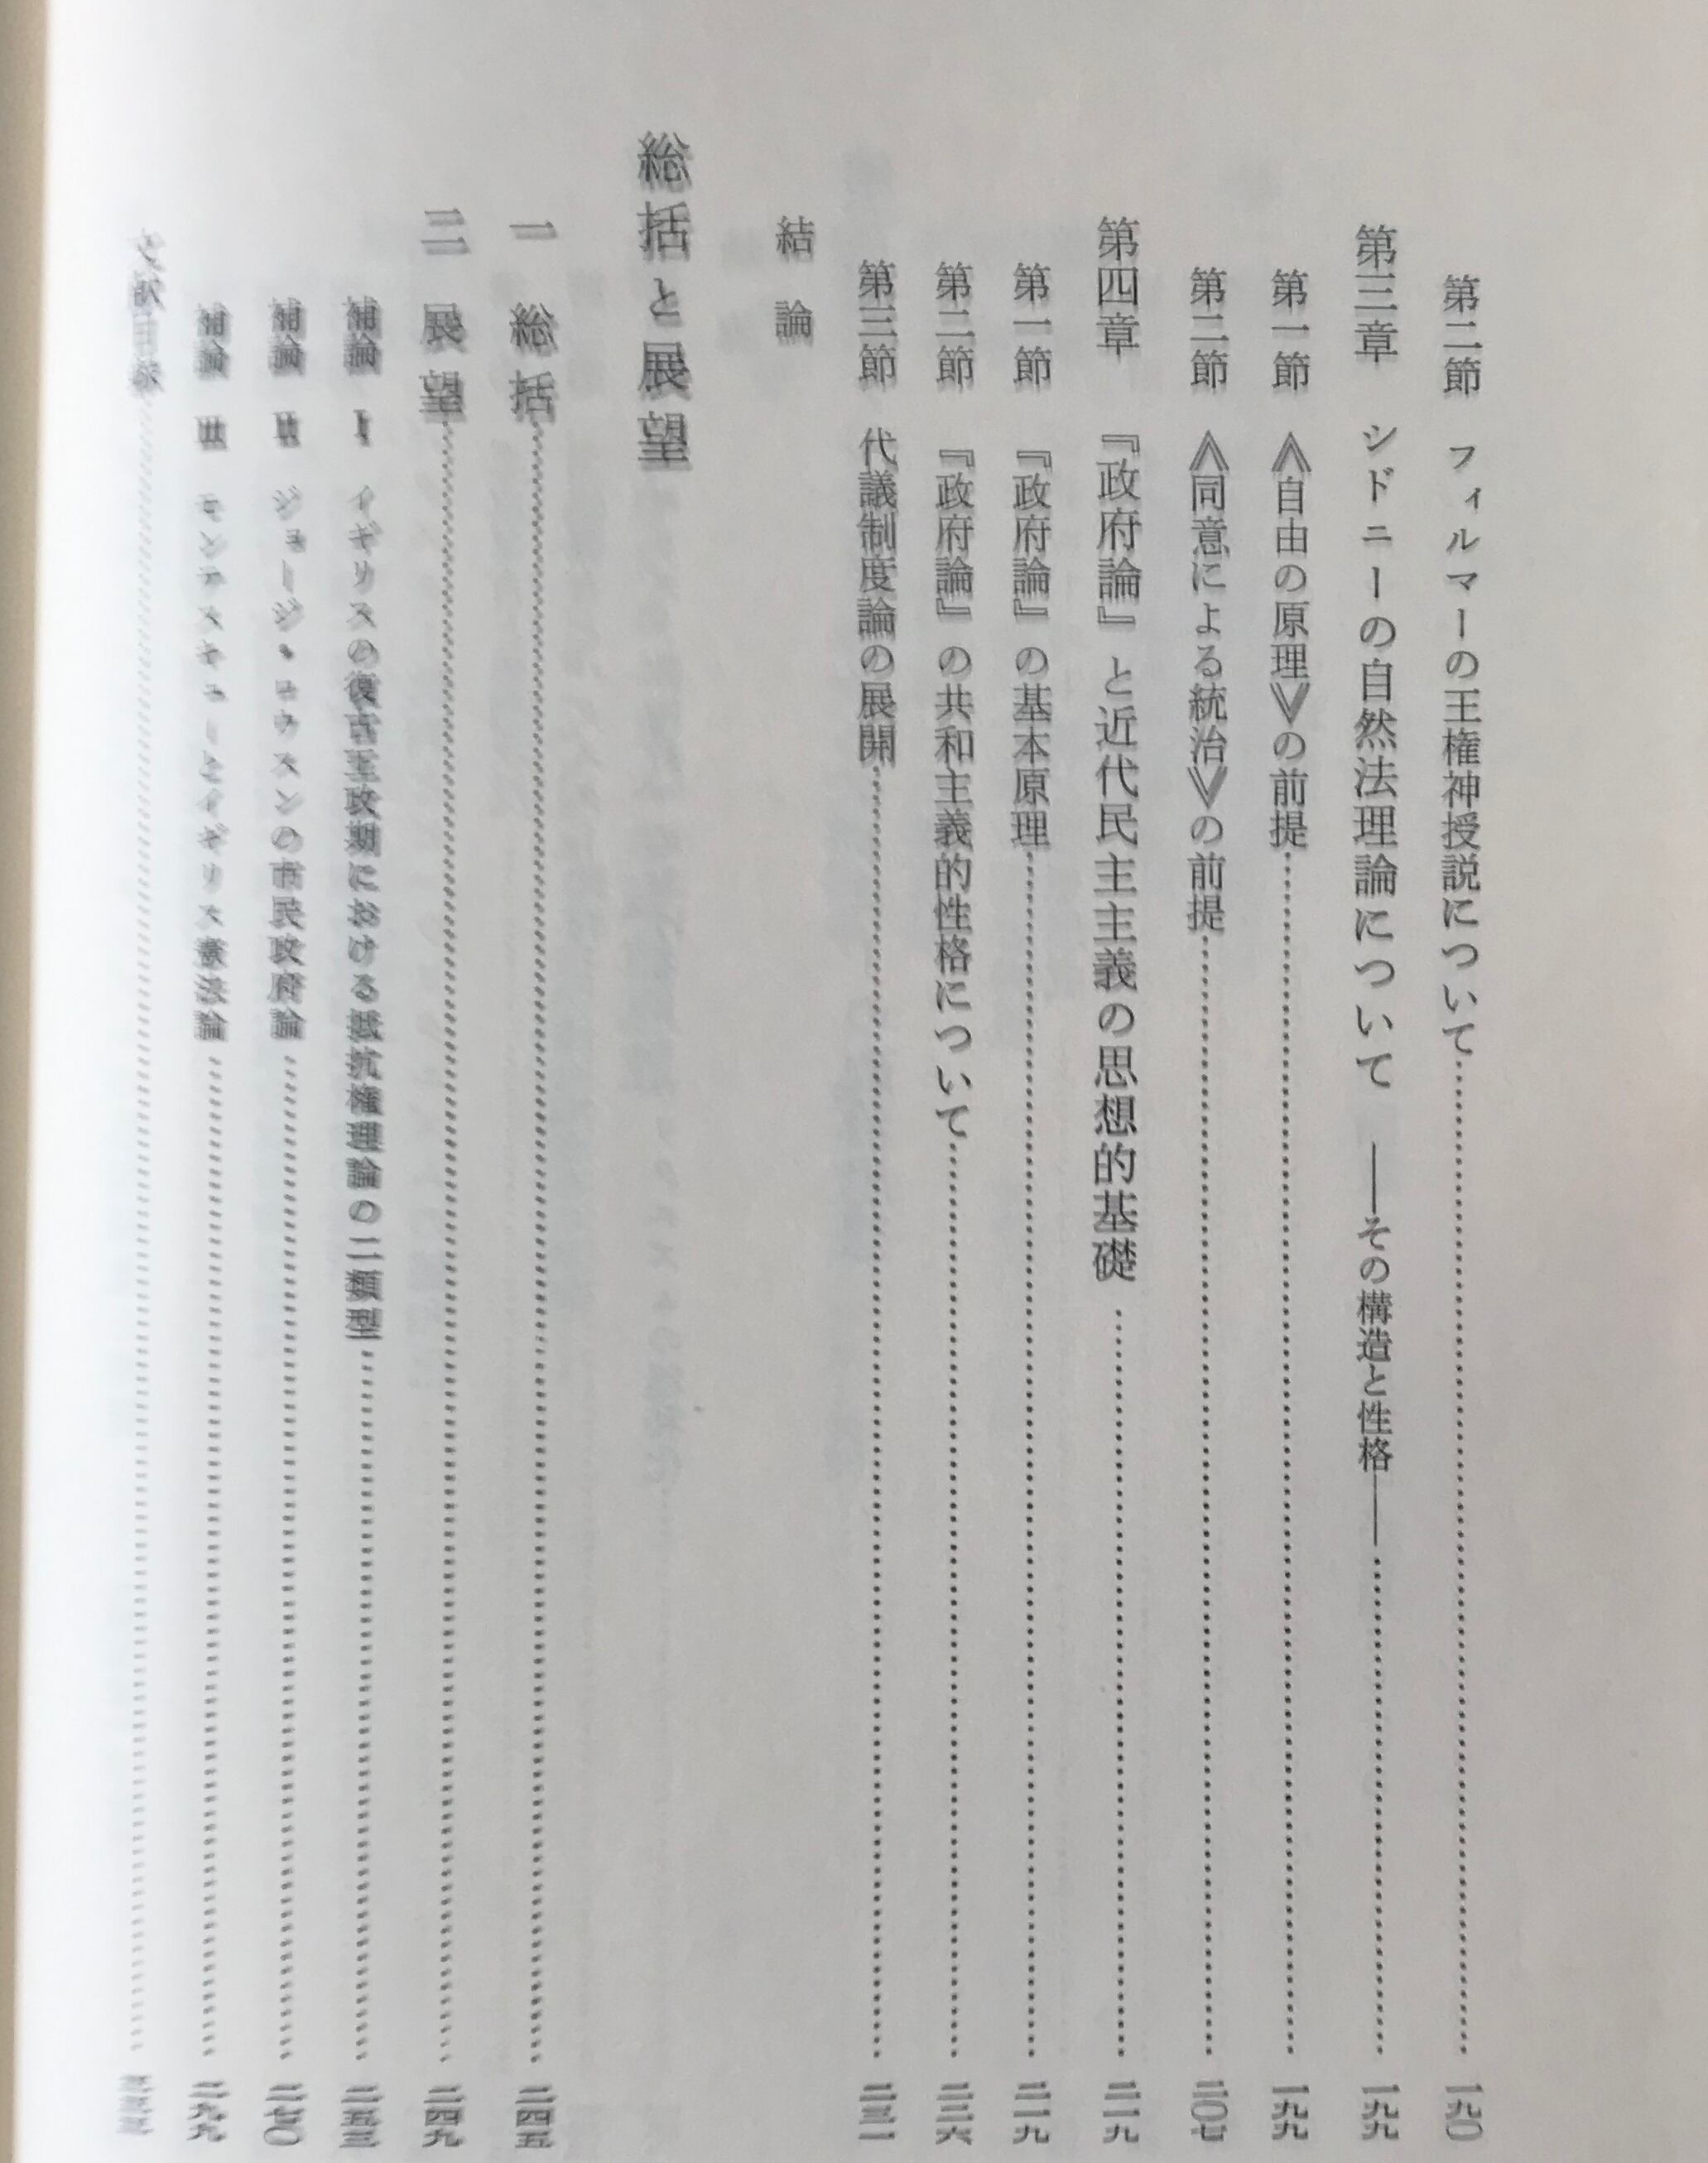 第二節　フィルマーの王権神授説について……………一九〇
第三章　シドニーの自然法理論について　――その構造と性格――……………一九九
第一節　≪自由の原理≫の前提……………一九九
第二節　≪同意による統治≫の前提……………二〇七
第四章　『政府論』と近代民主主義の思想的基礎……………二一九
第一節　『政府論』の基本原理……………二一九
第二節　『政府論』の共和主義的性格について……………二二六
第三節　代議制度論の展開……………二三一
結　論
総括と展望
一　総括……………二四五
二　展望……………二四九
補論　Ⅰ　イギリスの復古王政期における抵抗権理論の二類型……………二五三
補論　Ⅱ　ジョージ・ロウスンの市民政府論……………二七〇
補論　Ⅲ　モンテスキューとイギリス憲法論……………二九九
文献目録……………